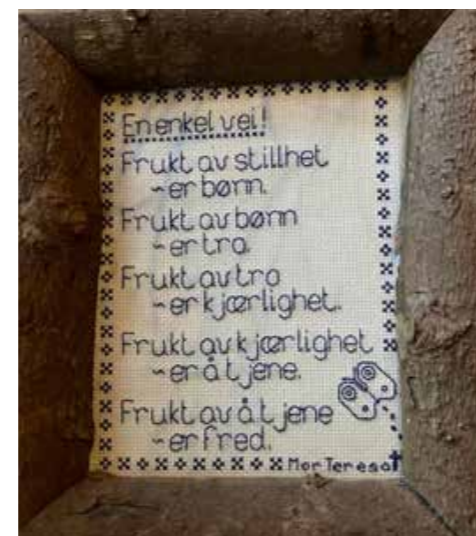 En enkel vei!
Frukt av stillhet
~er bønn.
Frukt av bønn
~er tro.
Frukt av tro
~er kjærlighet.
Frukt av kjærlighet
~er å tjene.
Frukt av å tjene
~er fred.
Mor Teresa